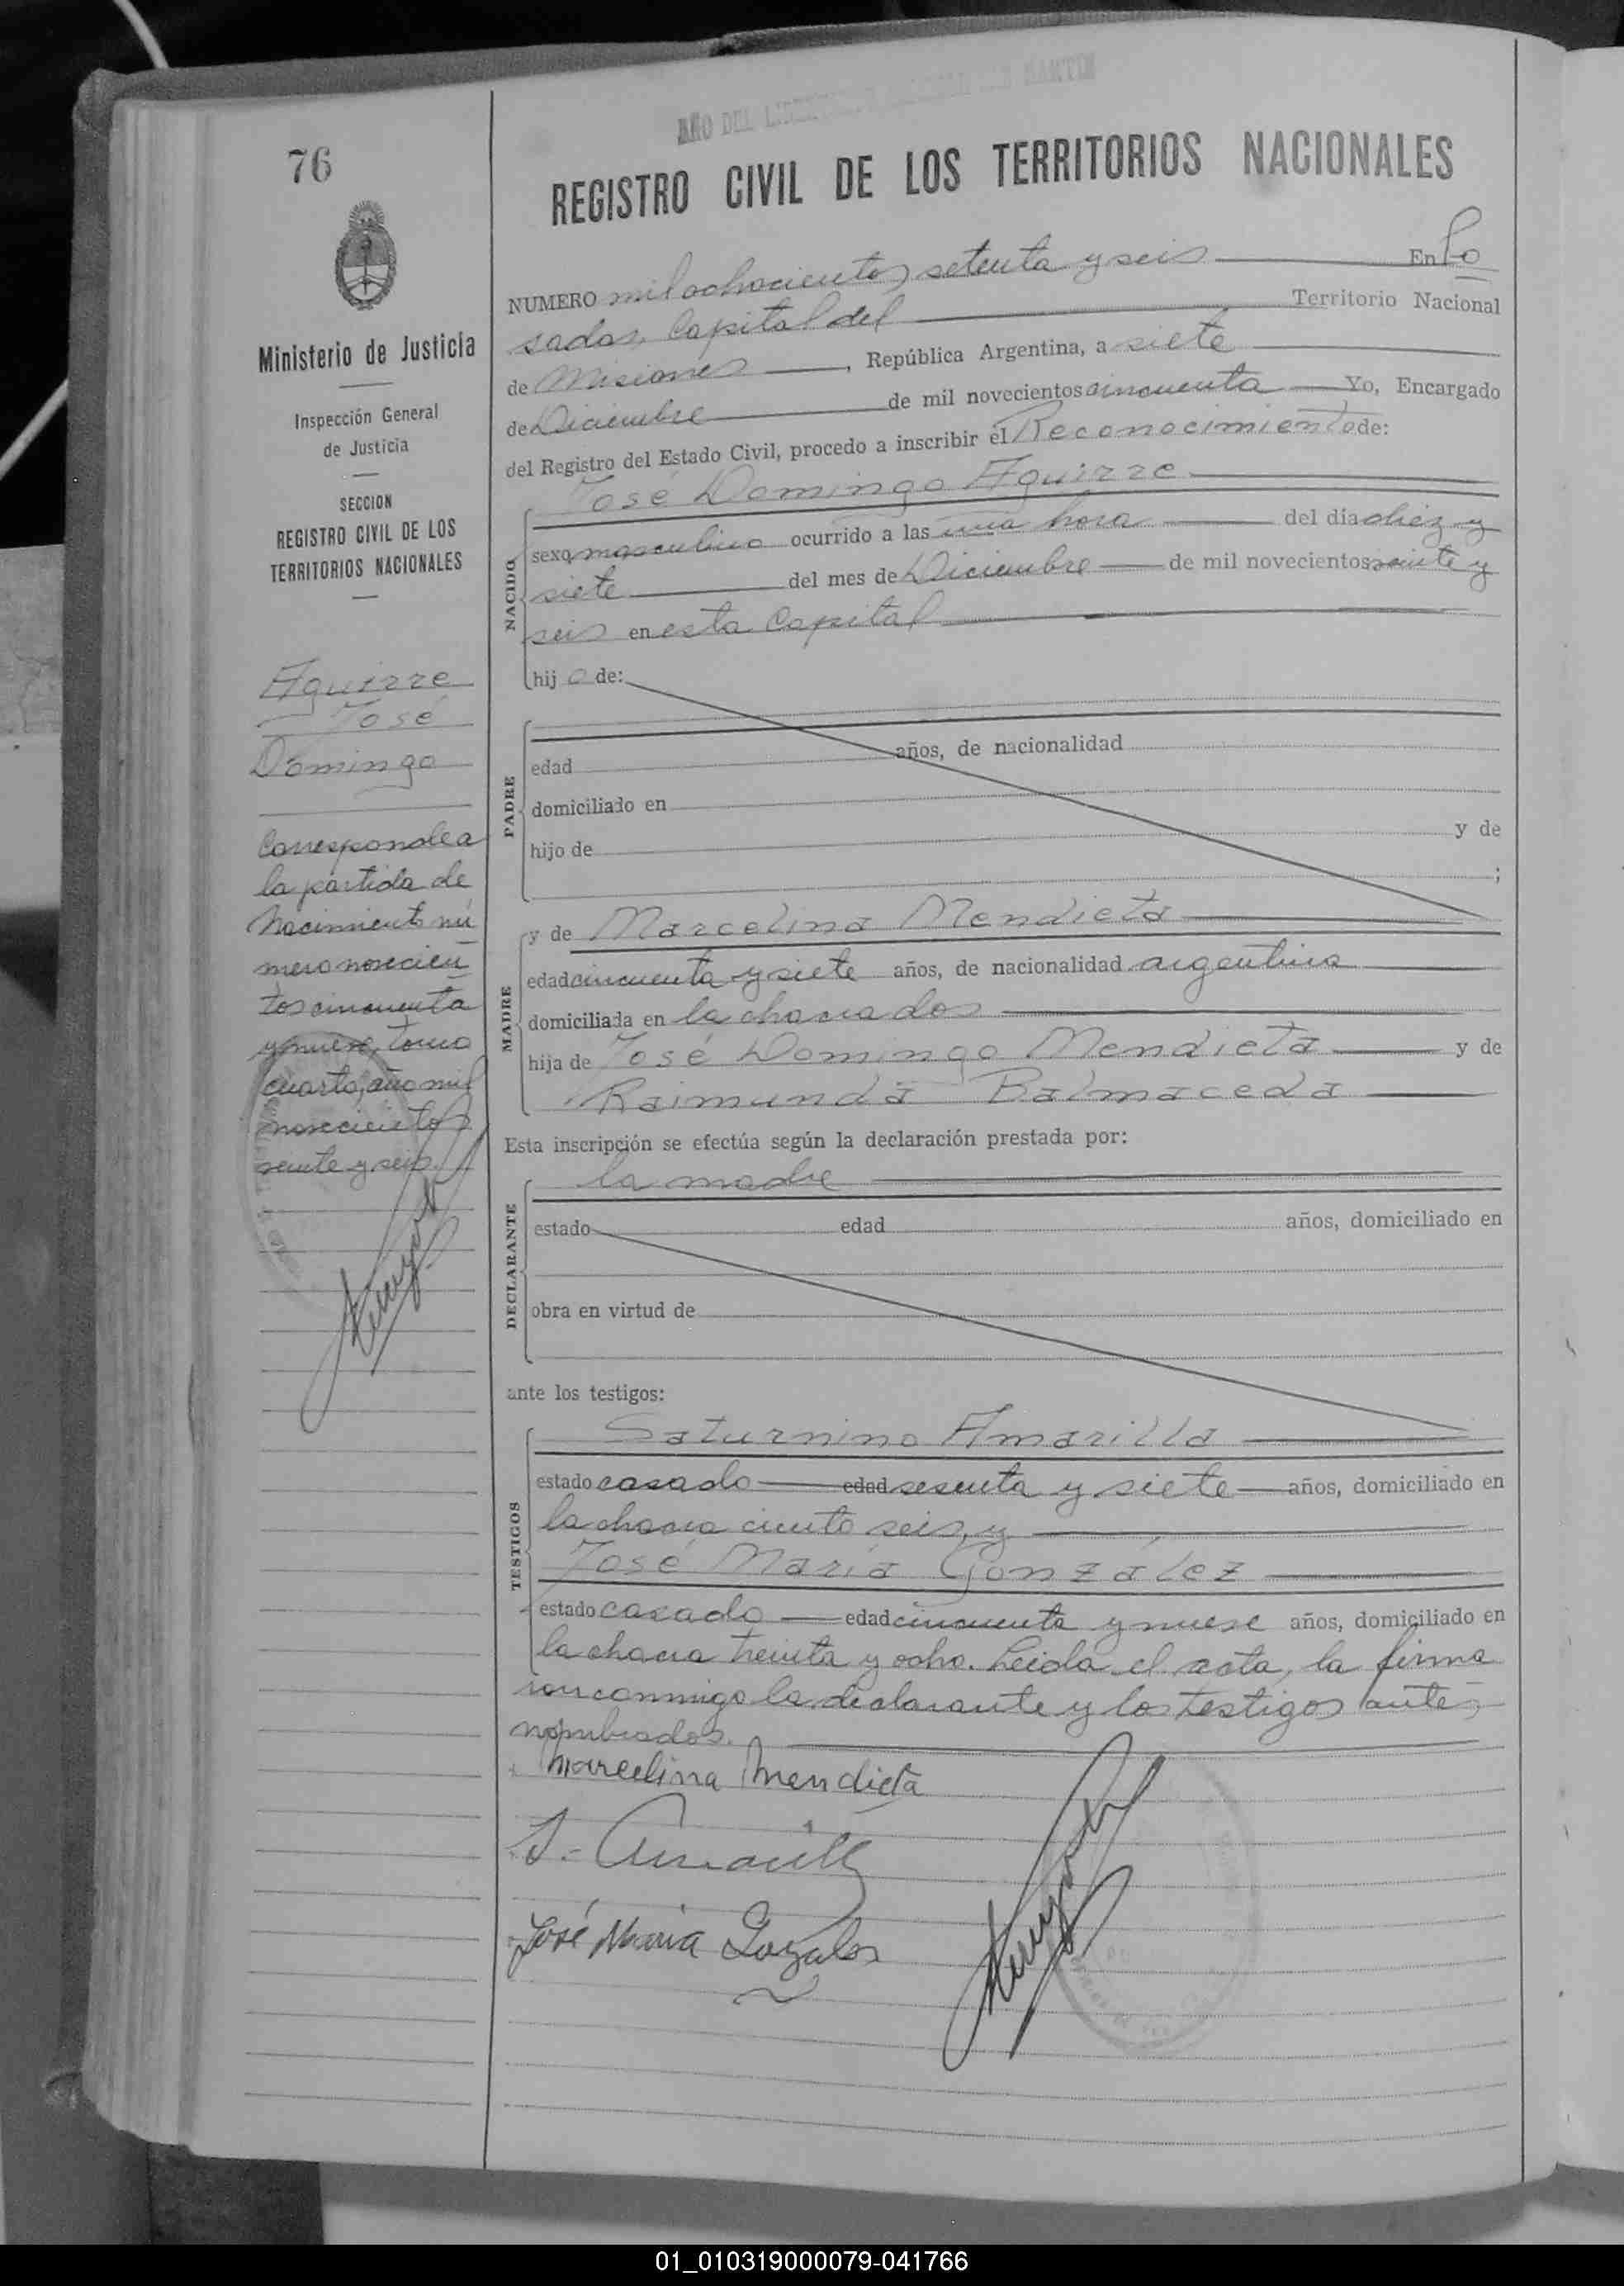 AÑO DEL LIBERTADOR GENERAL SAN MARTIN
76
REGISTRO CIVIL DE LOS TERRITORIOS NACIONALES
Ministerio de Justicia
Inspección General
de Justicia
SECCION
REGISTRO CIVIL DE LOS
TERRITORIOS NACIONALES
Aguirre
José
Domingo
Corresponde a
la partida de
Nacimiento nú
mero novecien
tos cincuenta
y nueve, tomo
cuarto, año mil
novecientos
veinte y seis.
NUMERO mil ochocientos setenta y seis En Po
sadas, Capital del Territorio Nacional
de Misiones, República Argentina, a siete
de Diciembre de mil novecientos cincuenta Yo, Encargado
del Registro del Estado Civil, procedo a inscribir el Reconocimiento de:
José Domingo Aguirre
NACIDO
sexo masculino ocurrido a las una hora del dia diez y
siete del mes de Diciembre de mil novecientos veinte y
seis en esta Capital
hijo de:
PADRE
edad años, de nacionalidad
domiciliado en
hijo de y de
;
MADRE
y de Marcelina Mendieta
edad cincuenta y siete años, de nacionalidad argentina
domiciliada en la chacra dos
hija de José Domingo Mendieta y de
Raimunda Balmaceda
Esta inscripción se efectúa según la declaración prestada por:
la madre
DECLARANTE
estado edad años, domiciliado en
obra en virtud de
ante los testigos:
TESTIGOS
Saturnino Amarilla
estado casado edad sesenta y siete años, domiciliado en
la chacra ciento seis, y
José María González
estado casado edad cincuenta y nueve años, domiciliado en
la chacra treinta y ocho. Leida el acta, la firma
ron conmigo la declarante y los testigos ante
nombrados.
Marcelina Mendieta
S. Amarilla
José Maria Gonzales
01_010319000079-041766